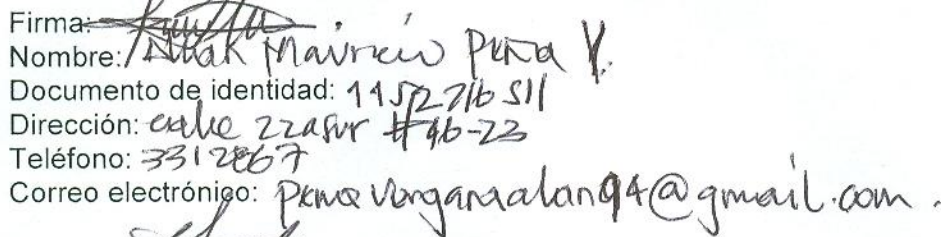 Firma:
Nombre: Alan Mauricio Peña V.
Documento de identidad: 1152716511
Dirección: calle 22asur #46-23
Teléfono: 3312867
Correo electrónico: penavergaraalan94@gmail.com.